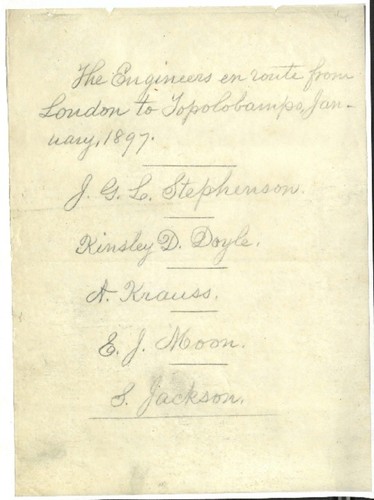 The Engineers en route from
London to Topolobampo, Jan-
uary, 1897.
J. G. L. Stephenson.
Kinsley D. Doyle.
A. Krauss.
E. J. Moon.
S. Jackson.